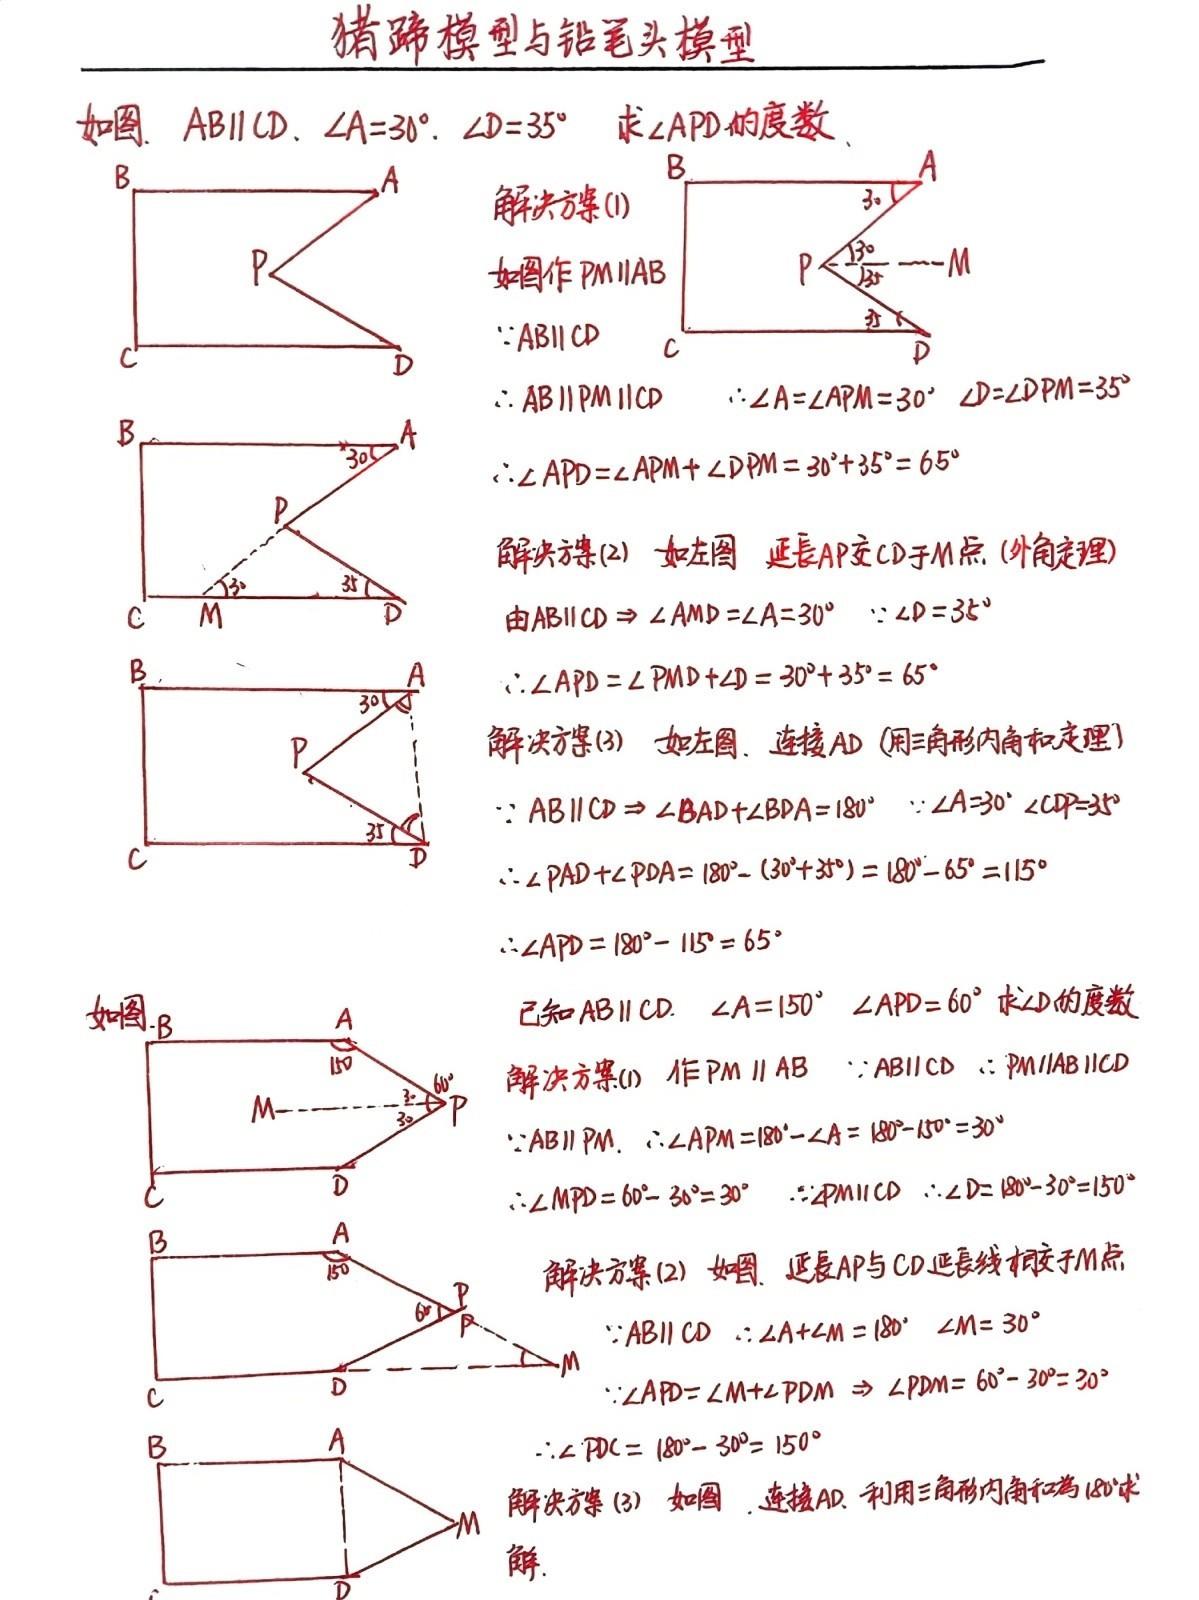 猪蹄模型与铅笔头模型
如图. AB∥CD、∠A=30°. ∠D=35° 求∠APD的度数、
B A
P
C D
解决方案(1)
如图作PM∥AB
∵AB∥CD
B A
30
P 30 M
35
35
C D
∴AB∥PM∥CD ∴∠A=∠APM=30° ∠D=∠DPM=35°
∴∠APD=∠APM+∠DPM=30°+35°=65°
B A
30
P
30 35
C M D
解决方案(2) 如左图 延長AP交CD于M点 (外角定理)
由AB∥CD⇒∠AMD=∠A=30° ∵∠D=35°
∴∠APD=∠PMD+∠D=30°+35°=65°
B A
30
P
35
C D
解决方案(3) 如左图、连接AD (用三角形内角和定理)
∵AB∥CD⇒∠BAD+∠BDA=180° ∵∠A=30° ∠CDP=35°
∴∠PAD+∠PDA=180°-(30°+35°)=180°-65°=115°
∴∠APD=180°-115°=65°
如图. 已知AB∥CD. ∠A=150° ∠APD=60° 求∠D的度数
B A
150
60°
M 30 P
30
C D
解决方案(1) 作PM∥AB ∵AB∥CD ∴PM∥AB∥CD
∵AB∥PM. ∴∠APM=180°-∠A=180°-150°=30°
∴∠MPD=60°-30°=30° ∵∠PM∥CD ∴∠D=180°-30°=150°
B A
150
60 P
P
M
C D
解决方案(2) 如图. 延長AP与CD延長线相交于M点
∵AB∥CD ∴∠A+∠M=180° ∠M=30°
∵∠APD=∠M+∠PDM⇒∠PDM=60°-30°=30°
∴∠PDC=180°-30°=150°
B A
M
C D
解决方案(3) 如图.连接AD、利用三角形内角和为180°求
解.